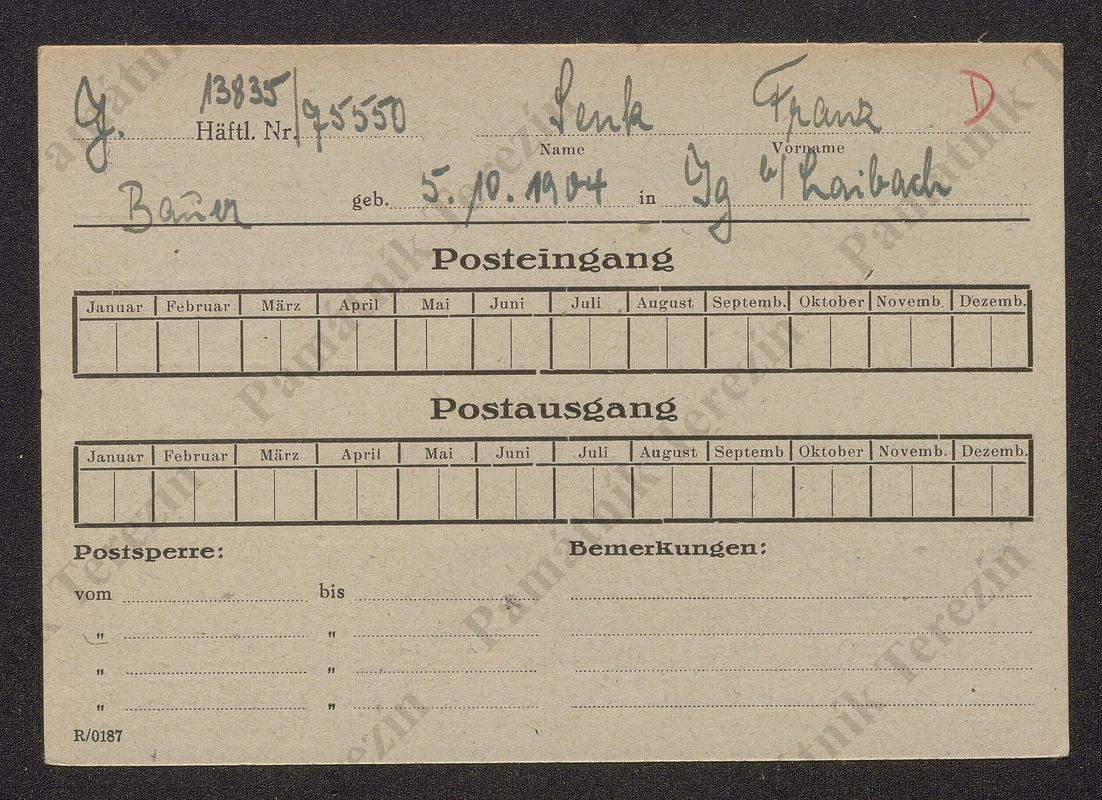 J. 13835/75550 Senk Franz D
Häftl. Nr. Name Vorname
Bauer geb. 5. 10. 1904 in Jg b/ Laibach
Posteingang
Januar Februar März April Mai Juni Juli August Septemb. Oktober Novemb. Dezemb.
Postausgang
Januar Februar März April Mai Juni Juli August Septemb Oktober Novemb. Dezemb.
Postsperre: Bemerkungen:
vom bis
" "
" "
" "
R/0187
Památník Terezín